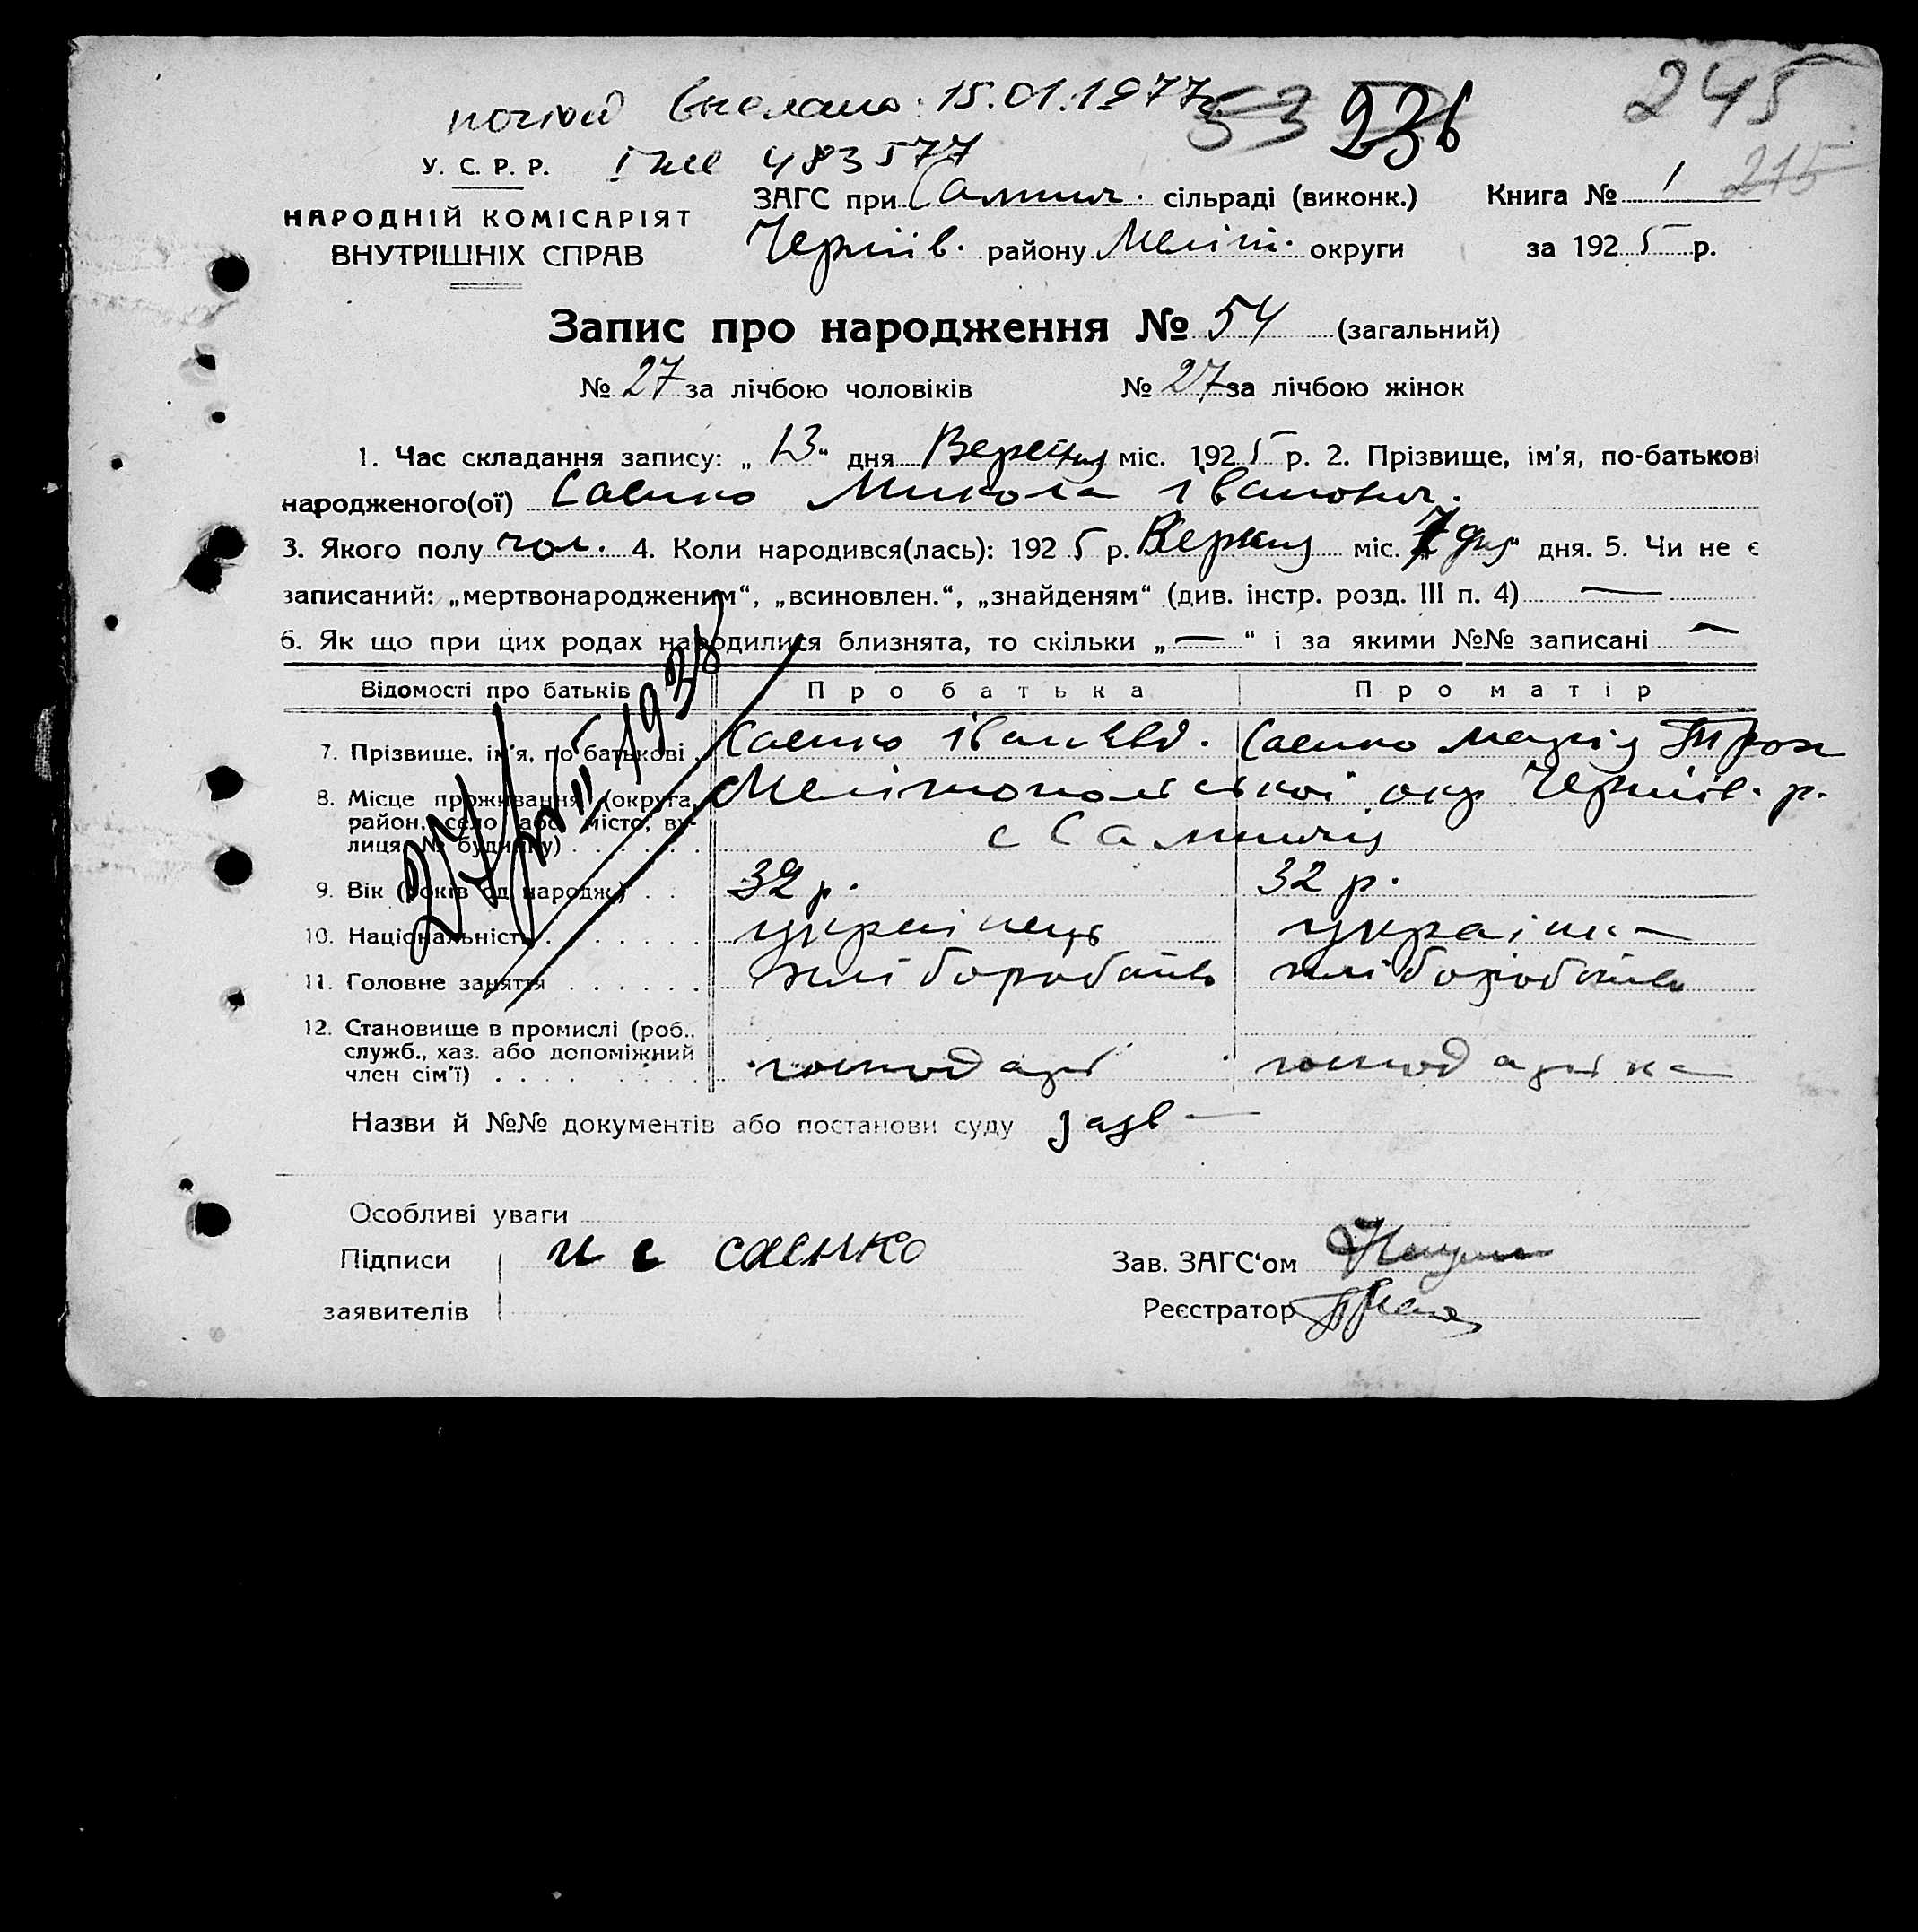 15.01.1977
53 236 245
У. С. Р. Р. 483577
215
НАРОДНІЙ КОМІСАРІЯТ
ВНУТРІШНІХ СПРАВ
ЗАГС при сільраді (виконк.) Книга № 1
району Меліт. округи за 1925 р.
Запис про народження № 54 (загальний)
№ 27 за лічбою чоловіків № 27 за лічбою жінок
1. Час складання запису: „13“ дня Вересня міс. 1925 р. 2. Прізвище, ім'я, по-батькові
народженого(ої) Саенко Микола Іванович.
3. Якого полу чол. 4. Коли народився(лась): 1925 р. міс. „7 дня“ дня. 5. Чи не є
записаний: „мертвонародженим“, „всиновлен.“, „знайденям“ (див. інстр. розд. III п. 4) —
6. Як що при цих родах народилися близнята, то скільки „—“ і за якими №№ записані —
Відомості про батьків Про батька Про матір
7. Прізвище, ім'я, по батькові . Саенко Іван Євд. Саенко Марія Трох
8. Місце проживання (округа, район, село або місто, вулиця, № будинку) . . . . . . Мелітопольської окр Черніів. р.
9. Вік (років од народж.) . . 32 р. 32 р.
10. Національність . . . . . . українець українка
11. Головне заняття . . . . . . хліборобство хліборобство
12. Становище в промислі (роб.,
служб., хаз. або допоміжний
член сім'ї) . . . . . . . . господарь господарька
Назви й №№ документів або постанови суду
Особливі уваги
Підписи и е саенко Зав. ЗАГС'ом
заявителів Реєстратор